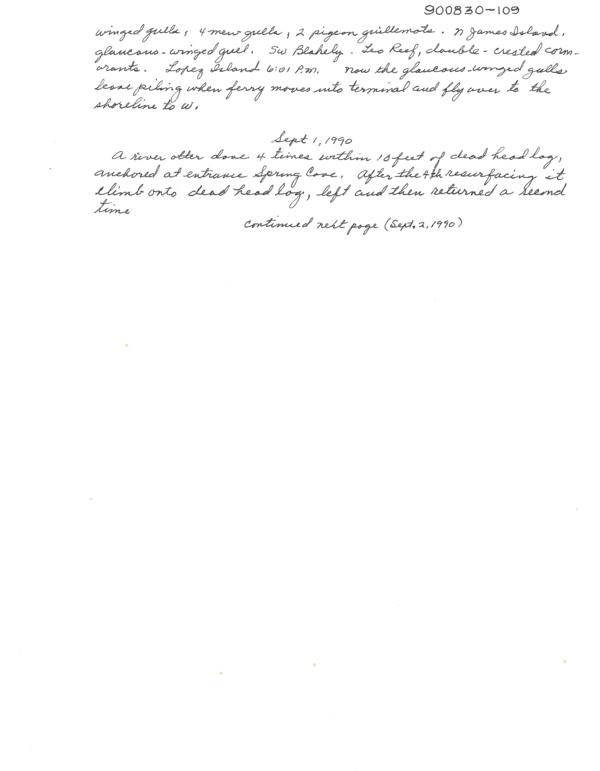 900830-109
winged gulls, 4 mew gulls, 2 pigeon guillemots. N James Island.
glaucous-winged gull. SW Blakely. Leo Reef, double-crested corm-
orants. Lopez Island 6:01 P.M. Now the glaucous-winged gulls
leave piling when ferry moves into terminal and fly over to the
shoreline to W.
Sept 1, 1990
A river otter dove 4 times within 10 feet of dead head log,
anchored at entrance Spring Cove. After the 4th resurfacing it
climb onto dead head log, left and then returned a second
time
continued next page (Sept. 2, 1990)